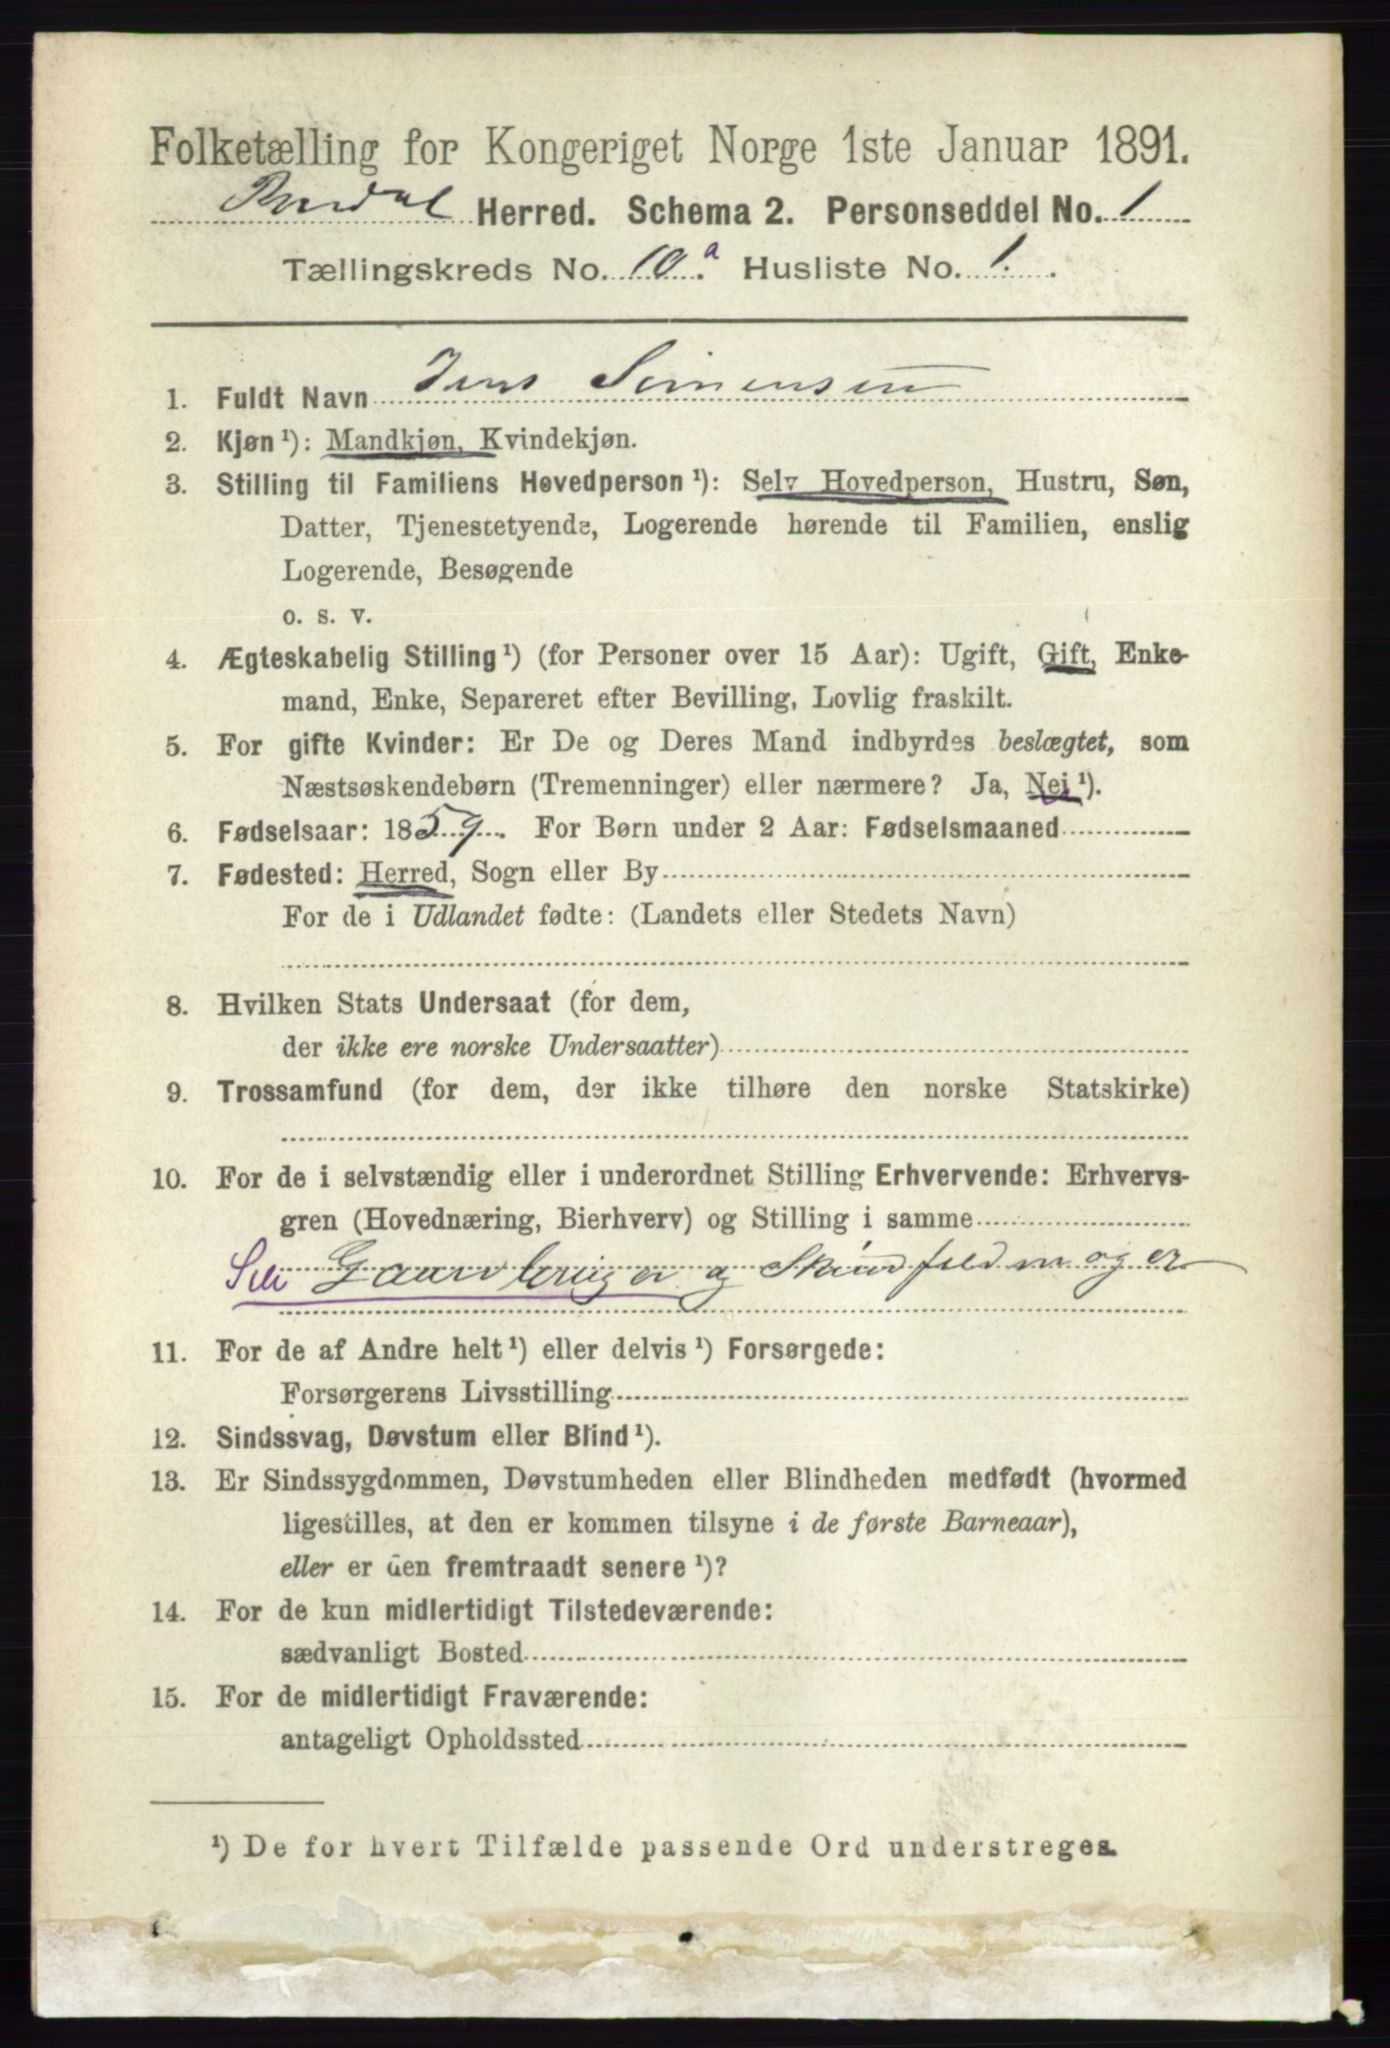 Folketælling for Kongeriget Norge 1ste Januar 1891.
Herred. Schema 2. Personseddel No. 1
Tællingskreds No. 10.a Husliste No. 1.
1. Fuldt Navn Jens Simensen
2. Kjøn¹): Mandkjøn, Kvindekjøn.
3. Stilling til Familiens Hovedperson¹): Selv Hovedperson, Hustru, Søn,
Datter, Tjenestetyende, Logerende hørende til Familien, enslig
Logerende, Besøgende
o. s. v.
4. Ægteskabelig Stilling¹) (for Personer over 15 Aar): Ugift, Gift, Enke-
mand, Enke, Separeret efter Bevilling, Lovlig fraskilt.
5. For gifte Kvinder: Er De og Deres Mand indbyrdes beslægtet, som
Næstsøskendebørn (Tremenninger) eller nærmere? Ja, Nei¹).
6. Fødselsaar: 1859. For Børn under 2 Aar: Fødselsmaaned
7. Fødested: Herred, Sogn eller By
For de i Udlandet fødte: (Landets eller Stedets Navn)
8. Hvilken Stats Undersaat (for dem,
der ikke ere norske Undersaatter)
9. Trossamfund (for dem, der ikke tilhøre den norske Statskirke)
10. For de i selvstændig eller i underordnet Stilling Erhvervende: Erhvervs-
gren (Hovednæring, Bierhverv) og Stilling i samme
Gaardbruger og Skindfeldmager
11. For de af Andre helt¹) eller delvis¹) Forsørgede:
Forsørgerens Livsstilling
12. Sindssvag, Døvstum eller Blind¹).
13. Er Sindssygdommen, Døvstumheden eller Blindheden medfødt (hvormed
ligestilles, at den er kommen tilsyne i de første Barneaar),
eller er den fremtraadt senere¹)?
14. For de kun midlertidigt Tilstedeværende:
sædvanligt Bosted
15. For de midlertidigt Fraværende:
antageligt Opholdssted
¹) De for hvert Tilfælde passende Ord understreges.